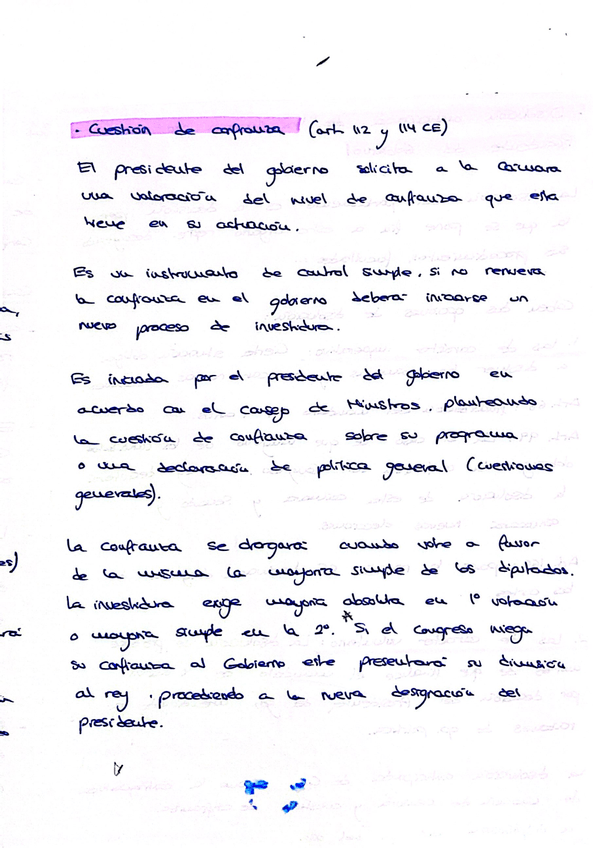 · Cuestión de confianza (arts 112 y 114 CE)
El presidente del gobierno solicita a la Cámara
una valoración del nivel de confianza que esta
tiene en su actuación.
Es un instrumento de control simple, si no renueva
la confianza en el gobierno deberá iniciarse un
nuevo proceso de investidura.
Es iniciada por el presidente del gobierno en
acuerdo con el consejo de Ministros, planteando
la cuestión de confianza sobre su programa
o una declaración de política general (cuestiones
generales).
La confianza se otorgará cuando vote a favor
de la misma la mayoría simple de los diputados.
La investidura exige mayoría absoluta en 1º votación
o mayoría simple en la 2º. * Si el Congreso niega
su confianza al Gobierno este presentará su dimisión
al rey, procediendo a la nueva designación del
presidente.